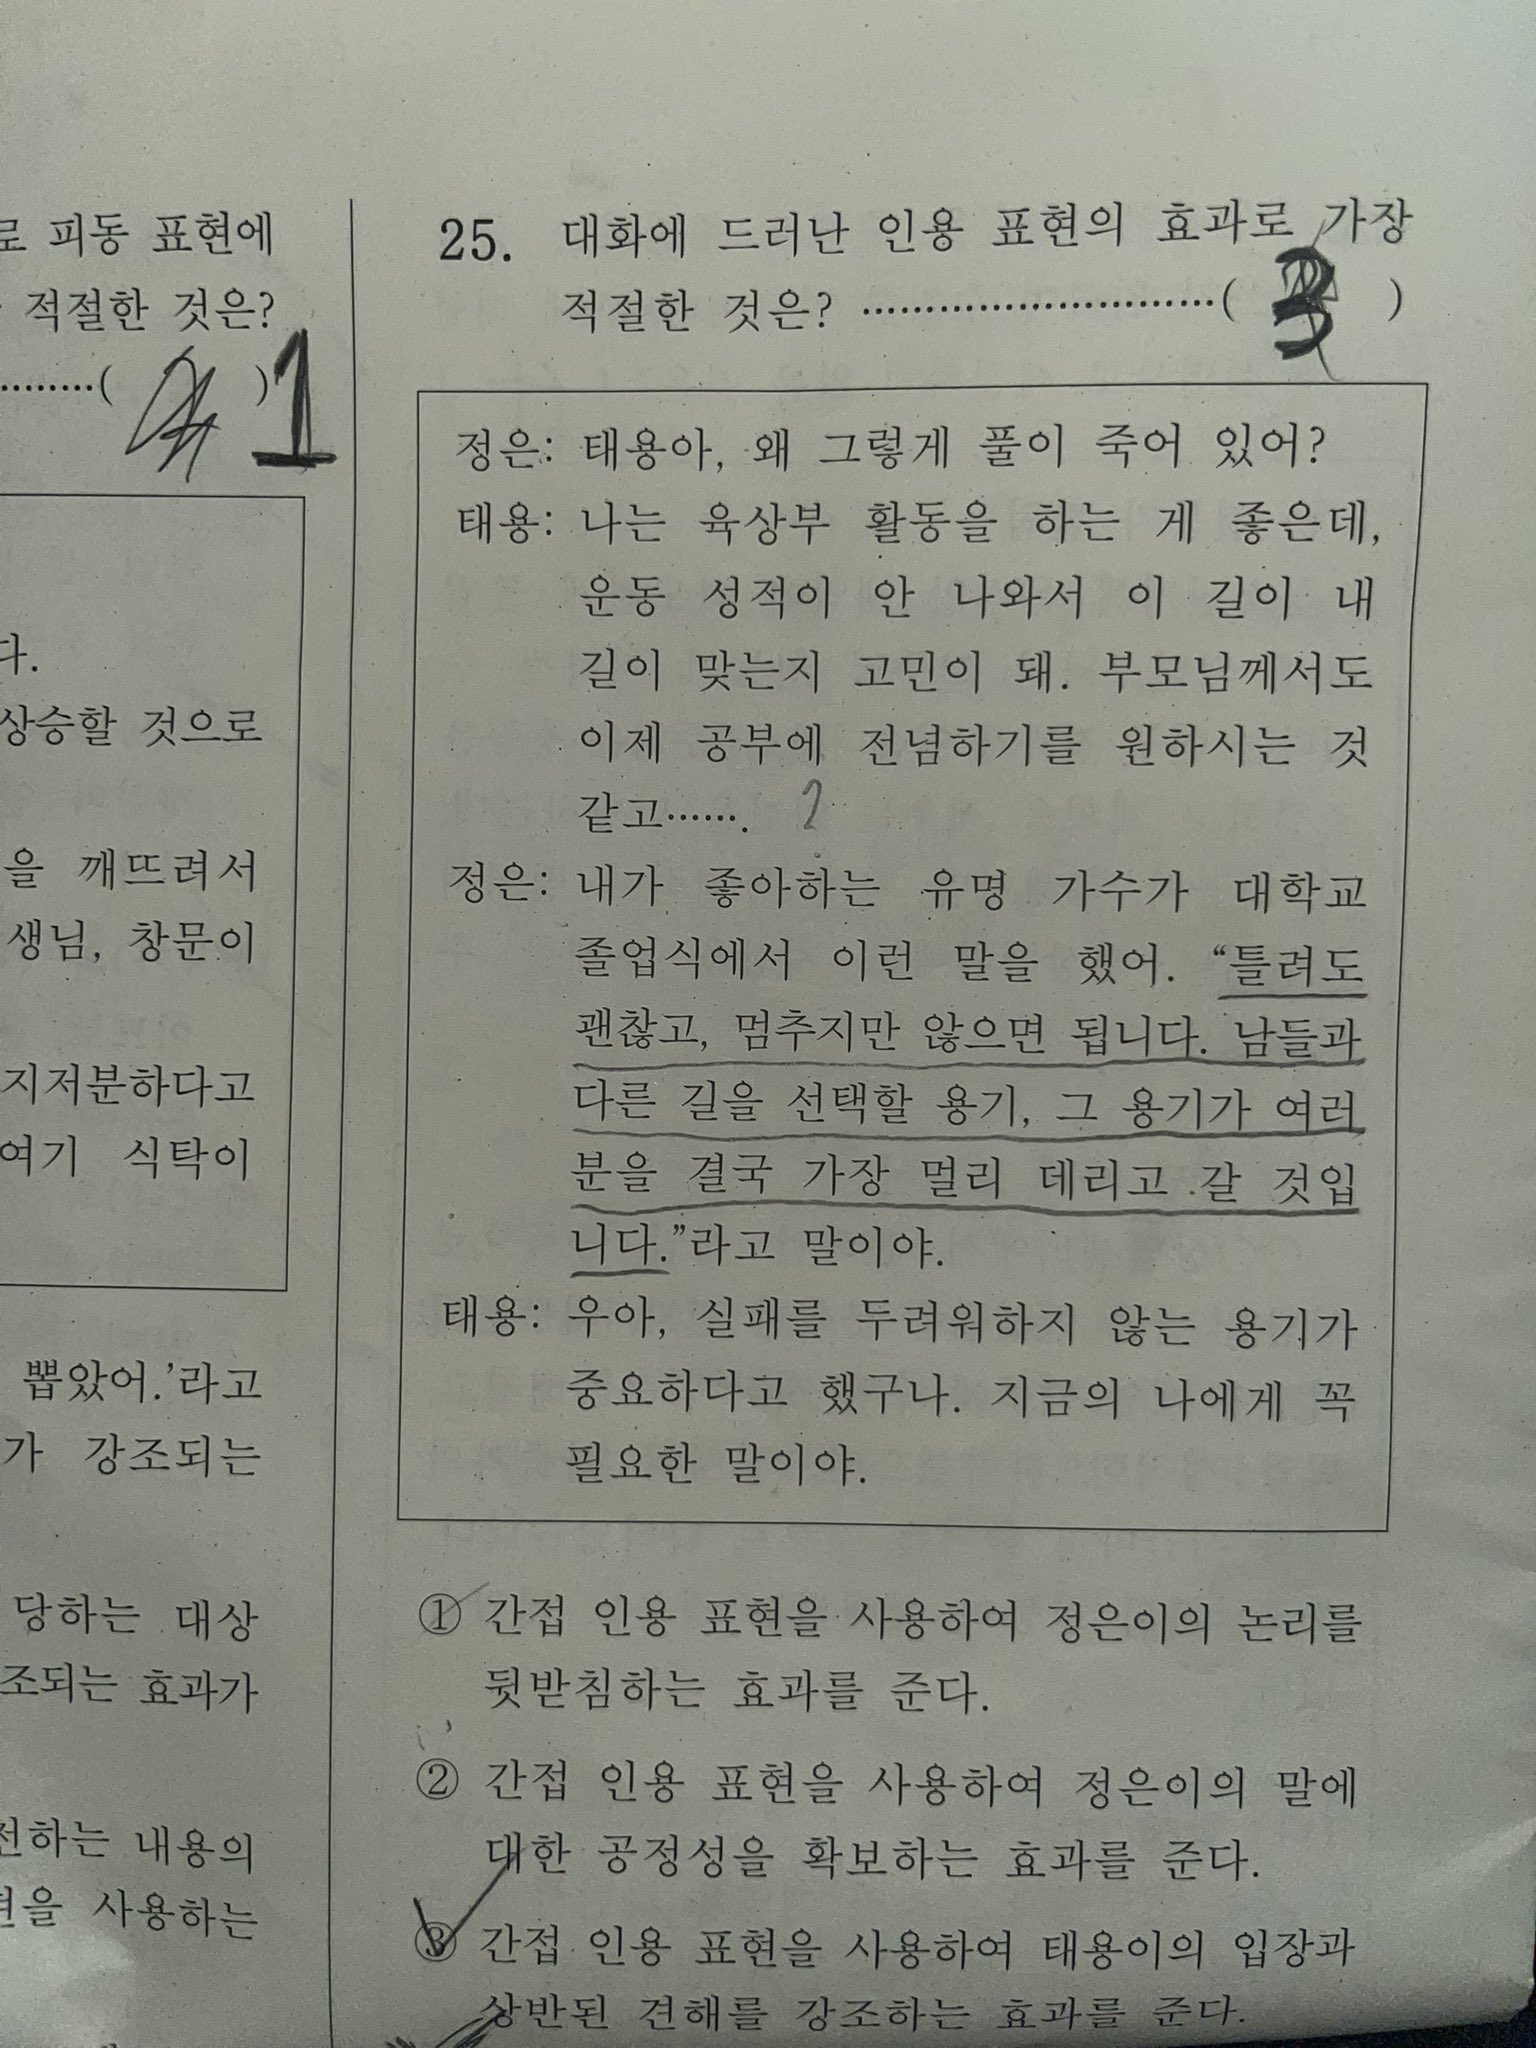 로 피동 표현에
적절한 것은?
………( ) 1
다.
상승할 것으로
을 깨뜨려서
생님, 창문이
지저분하다고
여기 식탁이
뽑았어.’라고
가 강조되는
당하는 대상
조되는 효과가
전하는 내용의
현을 사용하는
25. 대화에 드러난 인용 표현의 효과로 가장
적절한 것은? …………………………( 3 )
정은: 태용아, 왜 그렇게 풀이 죽어 있어?
태용: 나는 육상부 활동을 하는 게 좋은데,
운동 성적이 안 나와서 이 길이 내
길이 맞는지 고민이 돼. 부모님께서도
이제 공부에 전념하기를 원하시는 것
같고……. 2
정은: 내가 좋아하는 유명 가수가 대학교
졸업식에서 이런 말을 했어. “틀려도
괜찮고, 멈추지만 않으면 됩니다. 남들과
다른 길을 선택할 용기, 그 용기가 여러
분을 결국 가장 멀리 데리고 갈 것입
니다.”라고 말이야.
태용: 우아, 실패를 두려워하지 않는 용기가
중요하다고 했구나. 지금의 나에게 꼭
필요한 말이야.
① 간접 인용 표현을 사용하여 정은이의 논리를
뒷받침하는 효과를 준다.
② 간접 인용 표현을 사용하여 정은이의 말에
대한 공정성을 확보하는 효과를 준다.
③ 간접 인용 표현을 사용하여 태용이의 입장과
상반된 견해를 강조하는 효과를 준다.